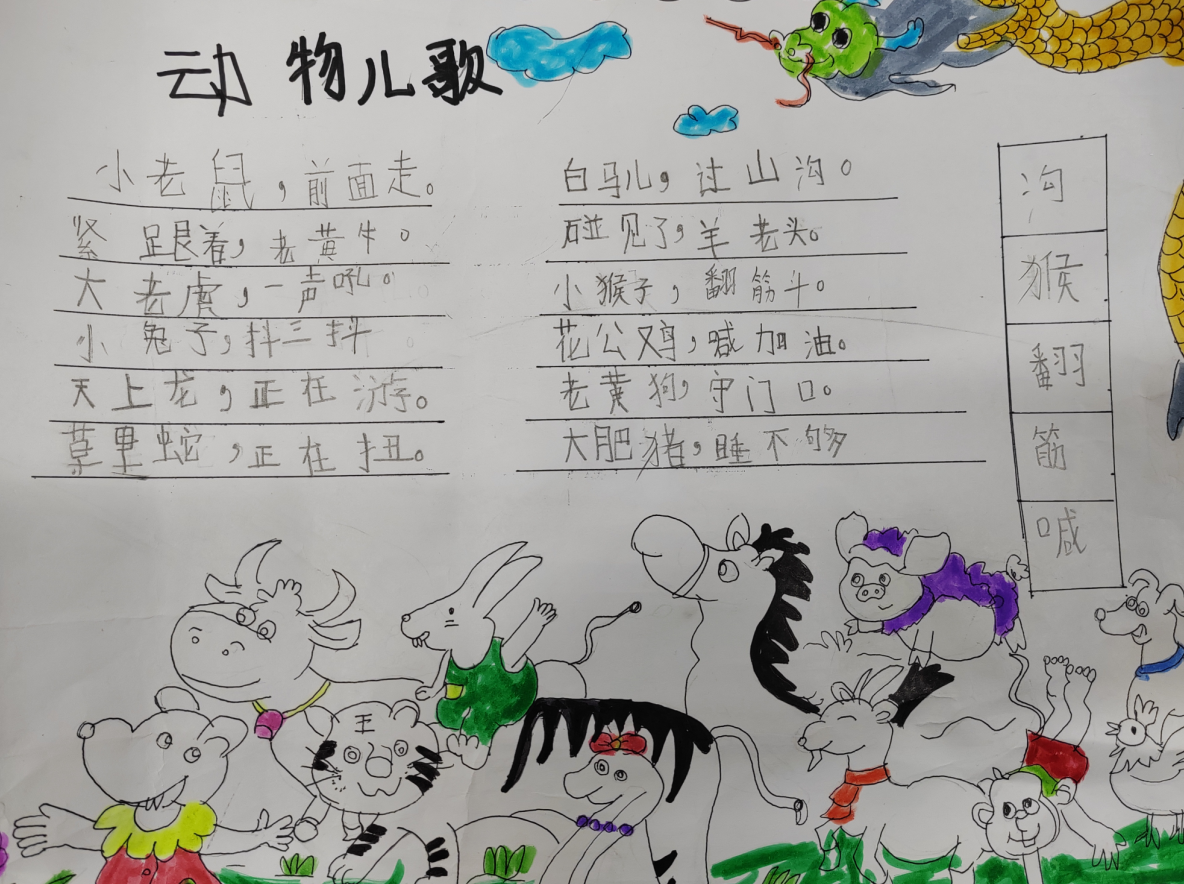 动物儿歌
小老鼠，前面走。
紧跟着，老黄牛。
大老虎，一声吼。
小兔子，抖三抖
天上龙，正在游。
草里蛇，正在扭。
白马儿，过山沟。
碰见了，羊老头。
小猴子，翻筋斗。
花公鸡，喊加油。
老黄狗，守门口。
大肥猪，睡不够
沟
猴
翻
筋
喊
王